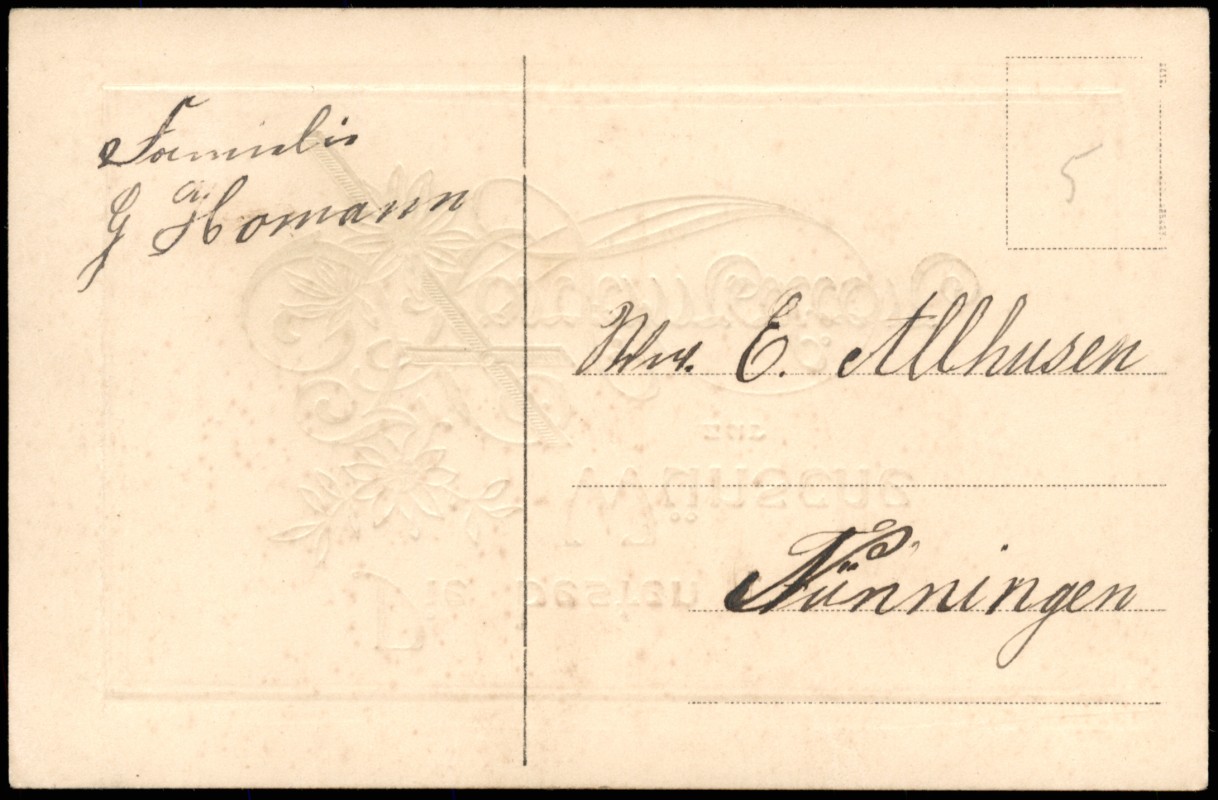 Familie
G Homann
5
E. Allhusen
Nünningen